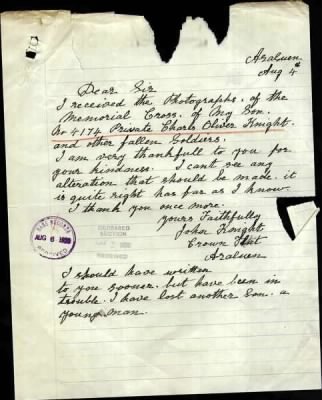 Araluen
Aug 4
Dear Sir
I received the Photographs. of the
Memorial Cross. of My Son.
No 4174 Private Charls Oliver Knight.
and other fallen Soldiers.
I am very thankfull to you for
your kindness. I cant see any
alteration that should be made. it
is quite right has far as I know.
I thank you once more.
Yours Faithfully
John Knight
Crown Flat
Araluen
AUG 6 1920
RECEIVED
I should have written
to you sooner. but have been in
trouble. I have lost another Son. a
young man.